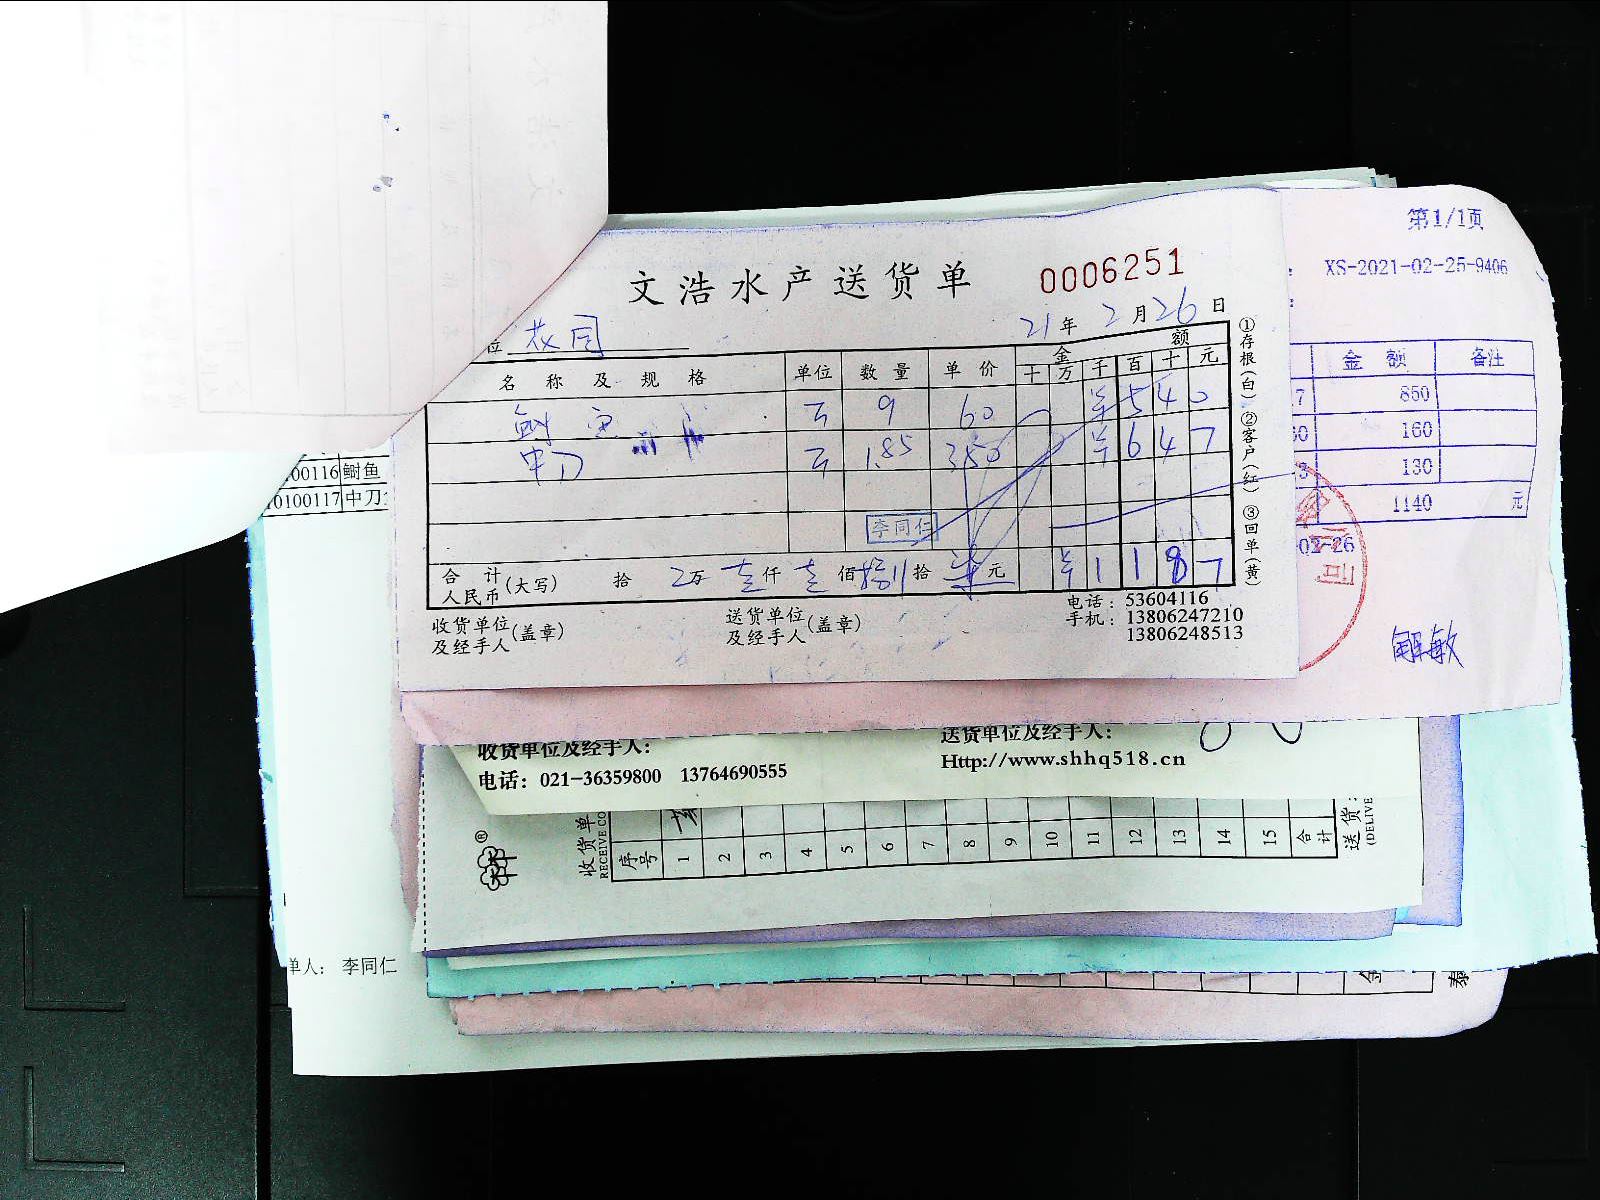 文浩水产送货单 0006251
位 花园 21年2月26日
名称及规格 单位 数量 单价 金额
十 万 千 百 十 元
9 60 ¥540
中刀 1.85 350 ¥647
李同仁
合计人民币(大写) 拾 万 壹仟 壹佰 捌拾 柒元 ¥1187
收货单位及经手人(盖章) 送货单位及经手人(盖章)
电话:53604116
手机:13806247210
13806248513
①存根(白) ②客户(红) ③回单(黄)
第1/1页
XS-2021-02-25-9406
金额 备注
850
160
130
1140 元
02-26
司
00116 鲥鱼
0100117 中刀
单人: 李同仁
收货单位及经手人: 送货单位及经手人:
电话: 021-36359800 13764690555 Http://www.shhq518.cn
收货单
RECEIVE CO
序号 1 2 3 4 5 6 7 8 9 10 11 12 13 14 15 合计
送货:
(DELIVE